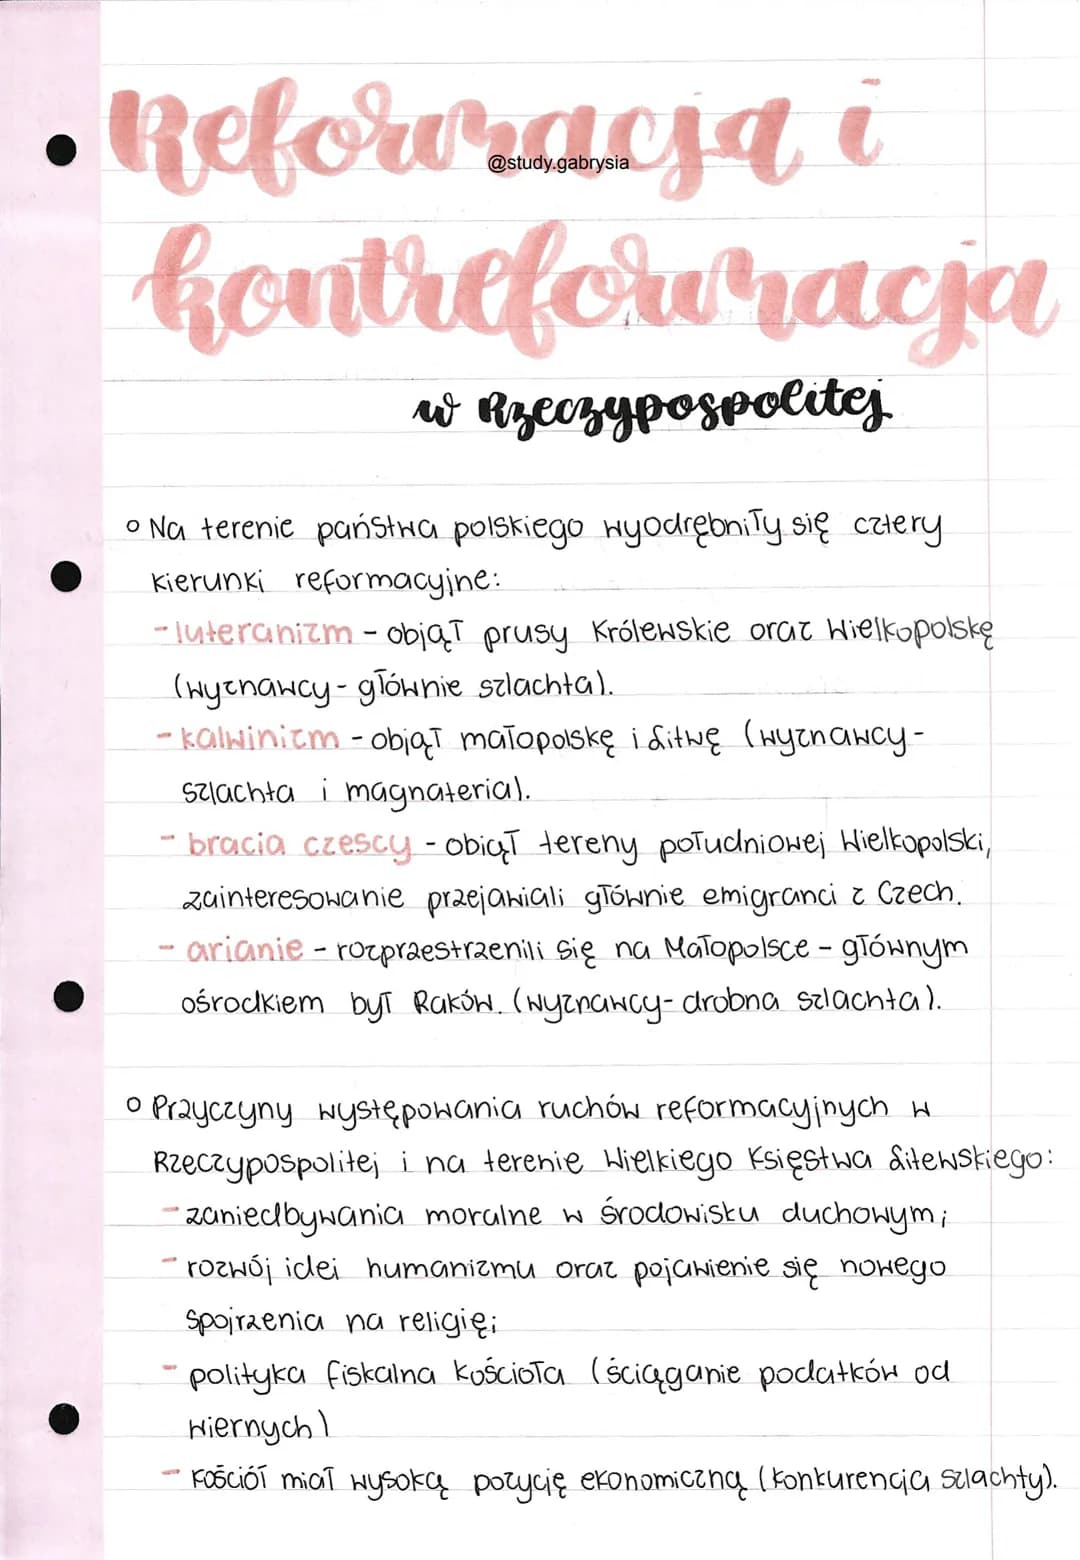 Reformacja i
@study.gabrysia
kontrreformacja
w Rzeczypospolitej
Na terenie państwa polskiego wyodrębniły się cztery
kierunki reformacyjne:
- luteranizm - objął prusy Królewskie oraz Wielkopolskę
(wyznawcy - głównie szlachta).
- kalwinizm - objął małopolskę i Litwę (wyznawcy -
szlachta i magnateria).
- bracia czescy - obiął tereny południowej Wielkopolski,
zainteresowanie przejawiali głównie emigranci z Czech.
- arianie - rozprzestrzenili się na Małopolsce - głównym
ośrodkiem był Raków. (wyznawcy - drobna szlachta).
Przyczyny występowania ruchów reformacyjnych w
Rzeczypospolitej i na terenie Wielkiego Księstwa Litewskiego:
- zaniedbywania moralne w środowisku duchowym;
- rozwój idei humanizmu oraz pojawienie się nowego
spojrzenia na religię;
- polityka fiskalna kościoła (ściąganie podatków od
wiernych)
- kościół miał wysoką pozycję ekonomiczną (konkurencja szlachty).